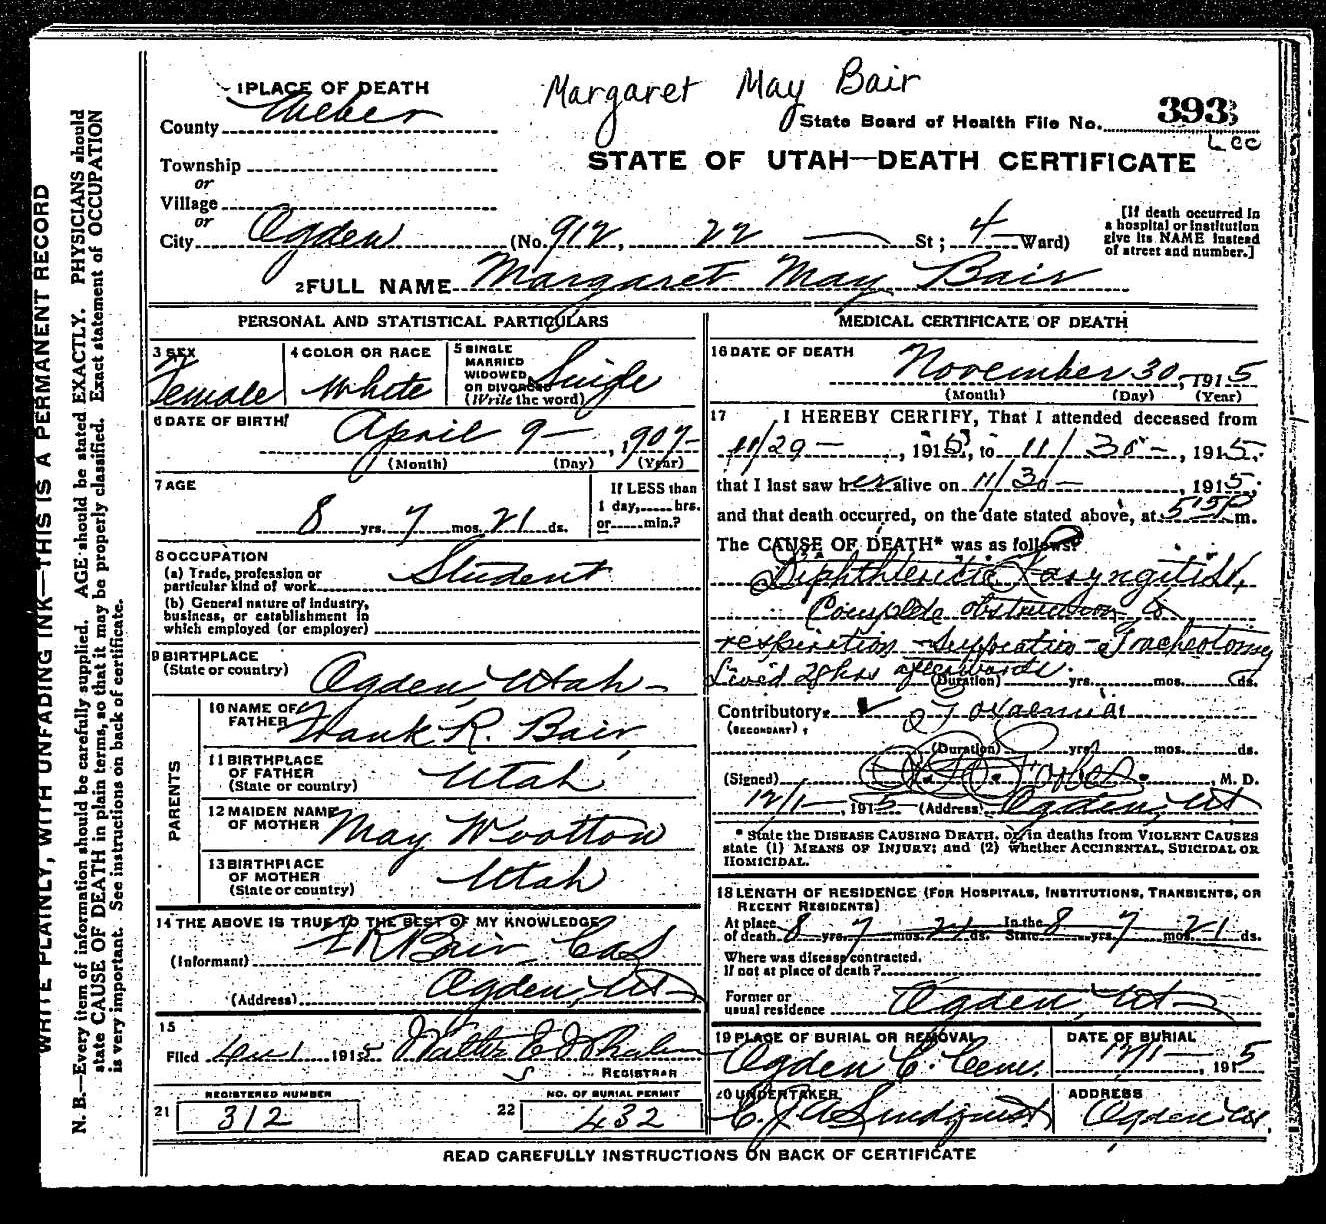 Margaret May Bair
1 PLACE OF DEATH
County Weber
State Board of Health File No. 393
STATE OF UTAH—DEATH CERTIFICATE
Township
or
Village
or
City Ogden (No. 912, 22 — St; 4 Ward)
[If death occurred in a hospital or institution give its NAME instead of street and number.]
2 FULL NAME Margaret May Bair
PERSONAL AND STATISTICAL PARTICULARS
3 SEX
Female
4 COLOR OR RACE
White
5 SINGLE
MARRIED
WIDOWED
OR DIVORCED
(Write the word)
Single
6 DATE OF BIRTH
April 9 —, 1907 —
(Month) (Day) (Year)
7 AGE
8 yrs. 7 mos. 21 ds.
If LESS than
1 day, hrs.
or min.?
8 OCCUPATION
(a) Trade, profession or
particular kind of work Student
(b) General nature of industry,
business, or establishment in
which employed (or employer)
9 BIRTHPLACE
(State or country)
Ogden, Utah —
PARENTS
10 NAME OF
FATHER
Frank R. Bair
11 BIRTHPLACE
OF FATHER
(State or country)
Utah
12 MAIDEN NAME
OF MOTHER
May Wootton
13 BIRTHPLACE
OF MOTHER
(State or country)
Utah
14 THE ABOVE IS TRUE TO THE BEST OF MY KNOWLEDGE
(Informant) F R Bair
(Address) Ogden, Ut —
15
Filed Dec 1 1915 Walter E. Whalen
REGISTRAR
REGISTERED NUMBER
21 312
NO. OF BURIAL PERMIT
22 432
MEDICAL CERTIFICATE OF DEATH
16 DATE OF DEATH
November 30, 1915
(Month) (Day) (Year)
17 I HEREBY CERTIFY, That I attended deceased from
11/29 —, 1915, to 11/30 —, 1915,
that I last saw her alive on 11/30 —, 1915,
and that death occurred, on the date stated above, at 5:15 P m.
The CAUSE OF DEATH* was as follows:
Diphtheritic Laryngitis,
Complete obstruction to
respiration — Suffocation — Tracheotomy
Lived 28 hrs afterwards.
(Duration) yrs. mos. ds.
Contributory Toxaemia
(SECONDARY)
(Duration) yrs. mos. ds.
(Signed) Forbes, M. D.
12/1 — 1915 (Address) Ogden, Ut
* State the DISEASE CAUSING DEATH, or, in deaths from VIOLENT CAUSES
state (1) MEANS OF INJURY; and (2) whether ACCIDENTAL, SUICIDAL OR
HOMICIDAL.
18 LENGTH OF RESIDENCE (FOR HOSPITALS, INSTITUTIONS, TRANSIENTS, OR
RECENT RESIDENTS)
At place
of death 8 yrs. 7 mos. 21 ds. In the State 8 yrs. 7 mos. 21 ds.
Where was disease contracted.
If not at place of death?
Former or
usual residence Ogden, Ut —
19 PLACE OF BURIAL OR REMOVAL
Ogden C. Cem.
DATE OF BURIAL
12/1 —, 1915
20 UNDERTAKER
C. J. A. Lindquist
ADDRESS
Ogden Ut.
READ CAREFULLY INSTRUCTIONS ON BACK OF CERTIFICATE
WRITE PLAINLY, WITH UNFADING INK—THIS IS A PERMANENT RECORD
N. B.—Every item of information should be carefully supplied. AGE should be stated EXACTLY. PHYSICIANS should
state CAUSE OF DEATH in plain terms, so that it may be properly classified. Exact statement of OCCUPATION
is very important. See instructions on back of certificate.